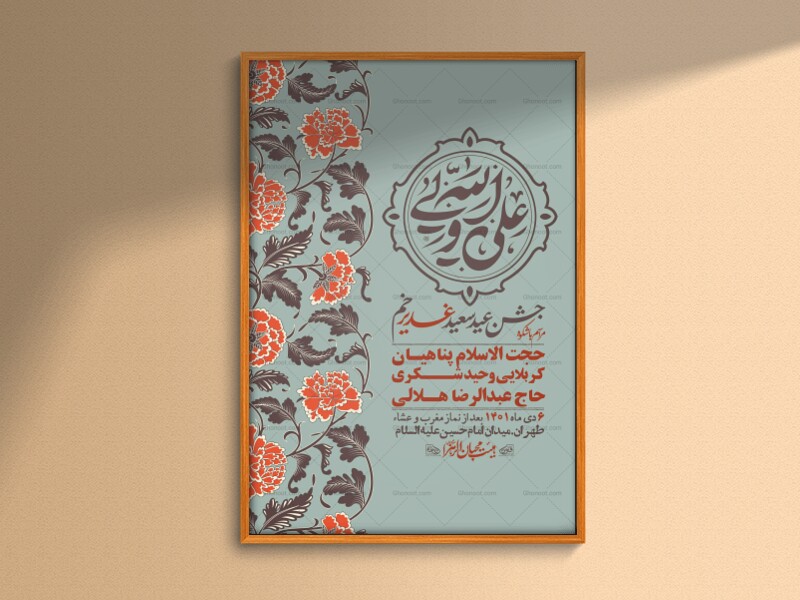 علی ولی الله
جشن عید سعید غدیر خم
مراسم باشکوه
حجت الاسلام پناهیان
کربلایی وحید شکری
حاج عبدالرضا هلالی
۶ دی ماه ۱۴۰۱ بعد از نماز مغرب و عشاء
طهران، میدان امام حسین علیه السلام